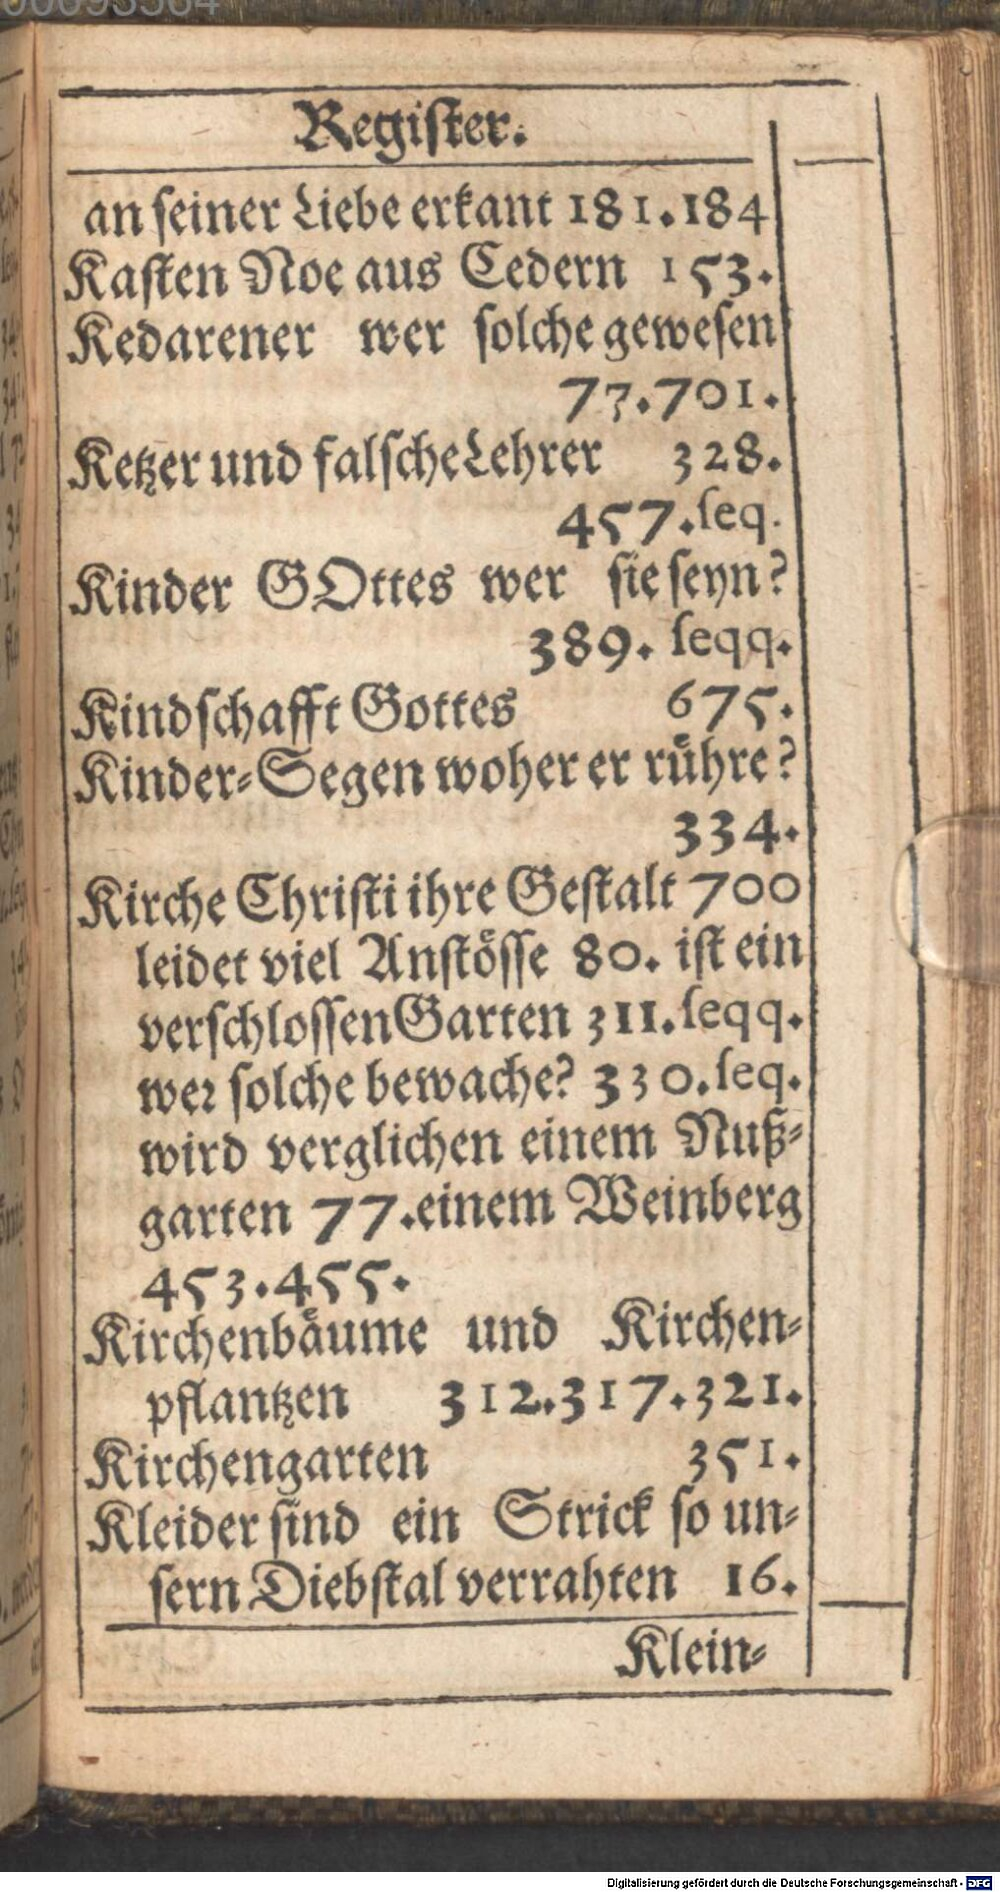 Regiſter.
an ſeiner Liebe erkant 181.184
Kaſten Noe aus Cedern 153.
Kedarener wer ſolche geweſen
77.701.
Ketzer und falſche Lehrer 328.
457.ſeq.
Kinder GOttes wer ſie ſeyn?
389. ſeqq.
Kindſchafft Gottes 675.
Kinder-Segen woher er ruͤhre?
334.
Kirche Chriſti ihre Geſtalt 700
leidet viel Anſtöſſe 80. iſt ein
verſchloſſen Garten 311.ſeqq.
wer ſolche bewache? 330.ſeq.
wird verglichen einem Nuß-
garten 77.einem Weinberg
453.455.
Kirchenbaͤume und Kirchen-
pflantzen 312.317.321.
Kirchengarten 351.
Kleider ſind ein Strick ſo un-
ſern Diebſtal verrahten 16.
Klein-
Digitalisierung gefördert durch die Deutsche Forschungsgemeinschaft - DFG